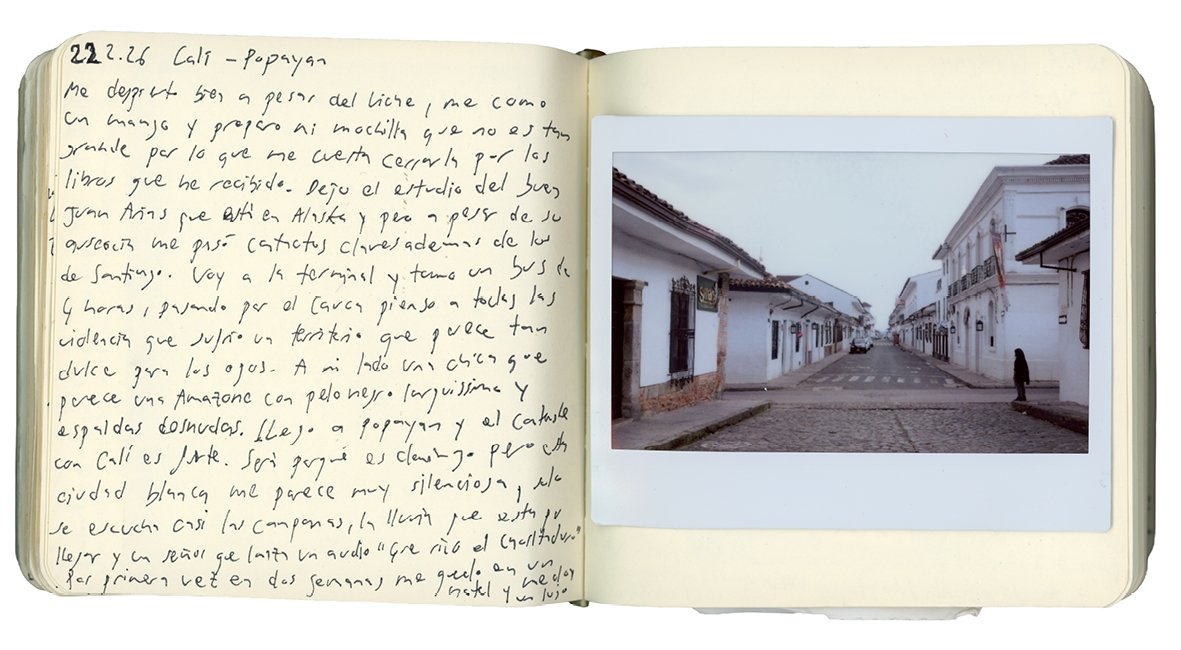 22 2.26 Cali - Popayan
Me despierto bien a pesar del viche, me como
un mango y preparo mi mochilla que no es tan
grande por lo que me cuesta cerrarla por los
libros que he recibido. Dejo el estudio del buen
Juan Arias que está en Alaska y pero a pesar de su
ausencia me pasó contactos claves ademas de los
de Santiago. Voy a la terminal y tomo un bus de
4 horas, pasando por el Cauca pienso a todas las
violencia que sufrio un territorio que parece tan
dulce para los ojos. A mi lado una chica que
parece una Amazone con pelo negro larguissimo y
espaldas desnudas. Llego a Popayan y el contraste
con Cali es fuerte. Será porqué es domingo pero esta
ciudad blanca me parece muy silenciosa, solo
se escucha casi las campanas, la lluvia que esta por
llegar y un señor que lanza un audio "Que rico el chontaduro"
Por primera vez en dos semanas me quedo en un
hotel y me doy
un lujo